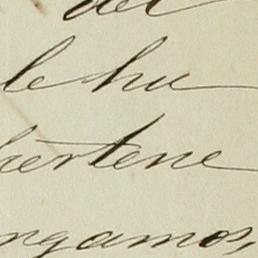 del
le hu
ertene
ngamos,